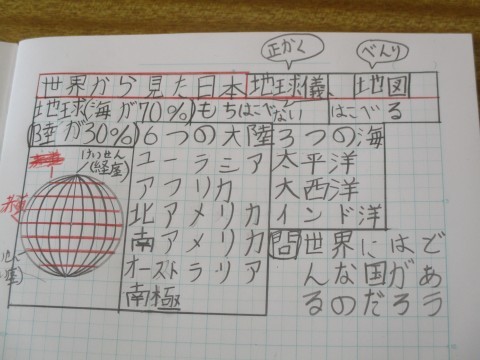 正かく
べんり
世界から見た日本
地球儀、
地図
地球(海が70%)
もちはこべない
はこべる
陸が30%)
6つの大陸
3つの海
けいせん
(経座)
ユーラシア
アフリカ
北アメリカ
南アメリカ
オーストラリア
南極
太平洋
大西洋
インド洋
問 世界にはど
んな国があ
るのだろう